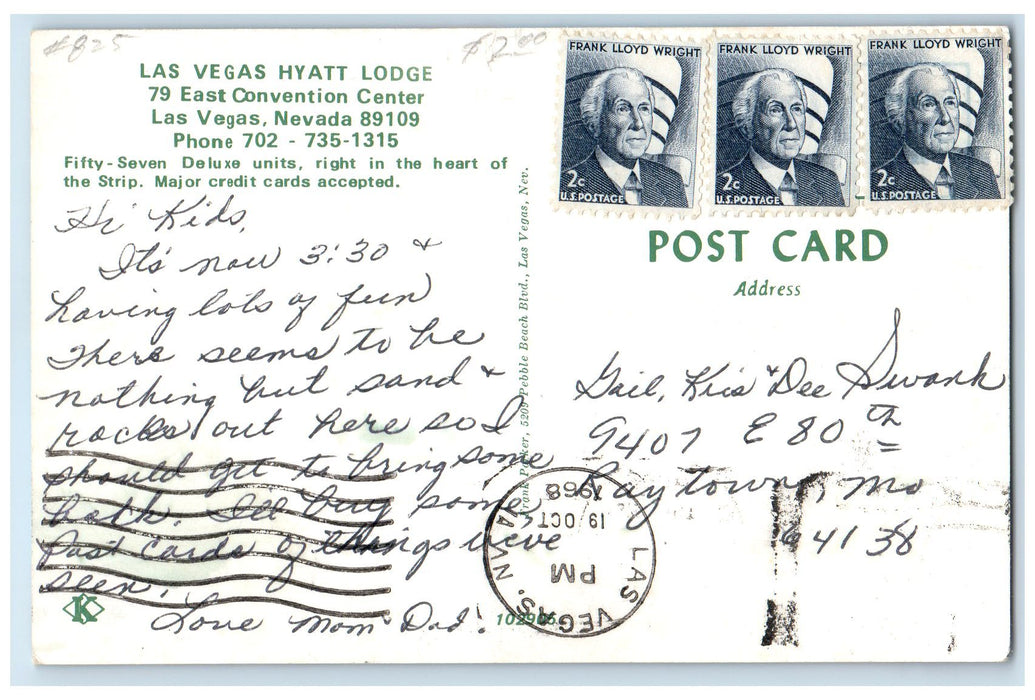 #825
$2.00
LAS VEGAS HYATT LODGE
79 East Convention Center
Las Vegas, Nevada 89109
Phone 702 - 735-1315
Fifty-Seven Deluxe units, right in the heart of
the Strip. Major credit cards accepted.
Hi Kids,
It's now 3:30 &
having lots of fun
There seems to be
nothing but sand &
rocks out here so I
should get to bring some
back. I'll buy some
Post Cards of things we've
seen.
Love Mom Dad.
K
Parker, 5209 Pebble Beach Blvd., Las Vegas, Nev.
FRANK LLOYD WRIGHT
2c
U.S. POSTAGE
FRANK LLOYD WRIGHT
2c
U.S. POSTAGE
FRANK LLOYD WRIGHT
2c
U.S. POSTAGE
POST CARD
Address
Gail, Kris & Dee Swank
9407 E 80th
Raytown, Mo
64138
LAS VEGAS, NEVADA
PM
19 OCT
1968